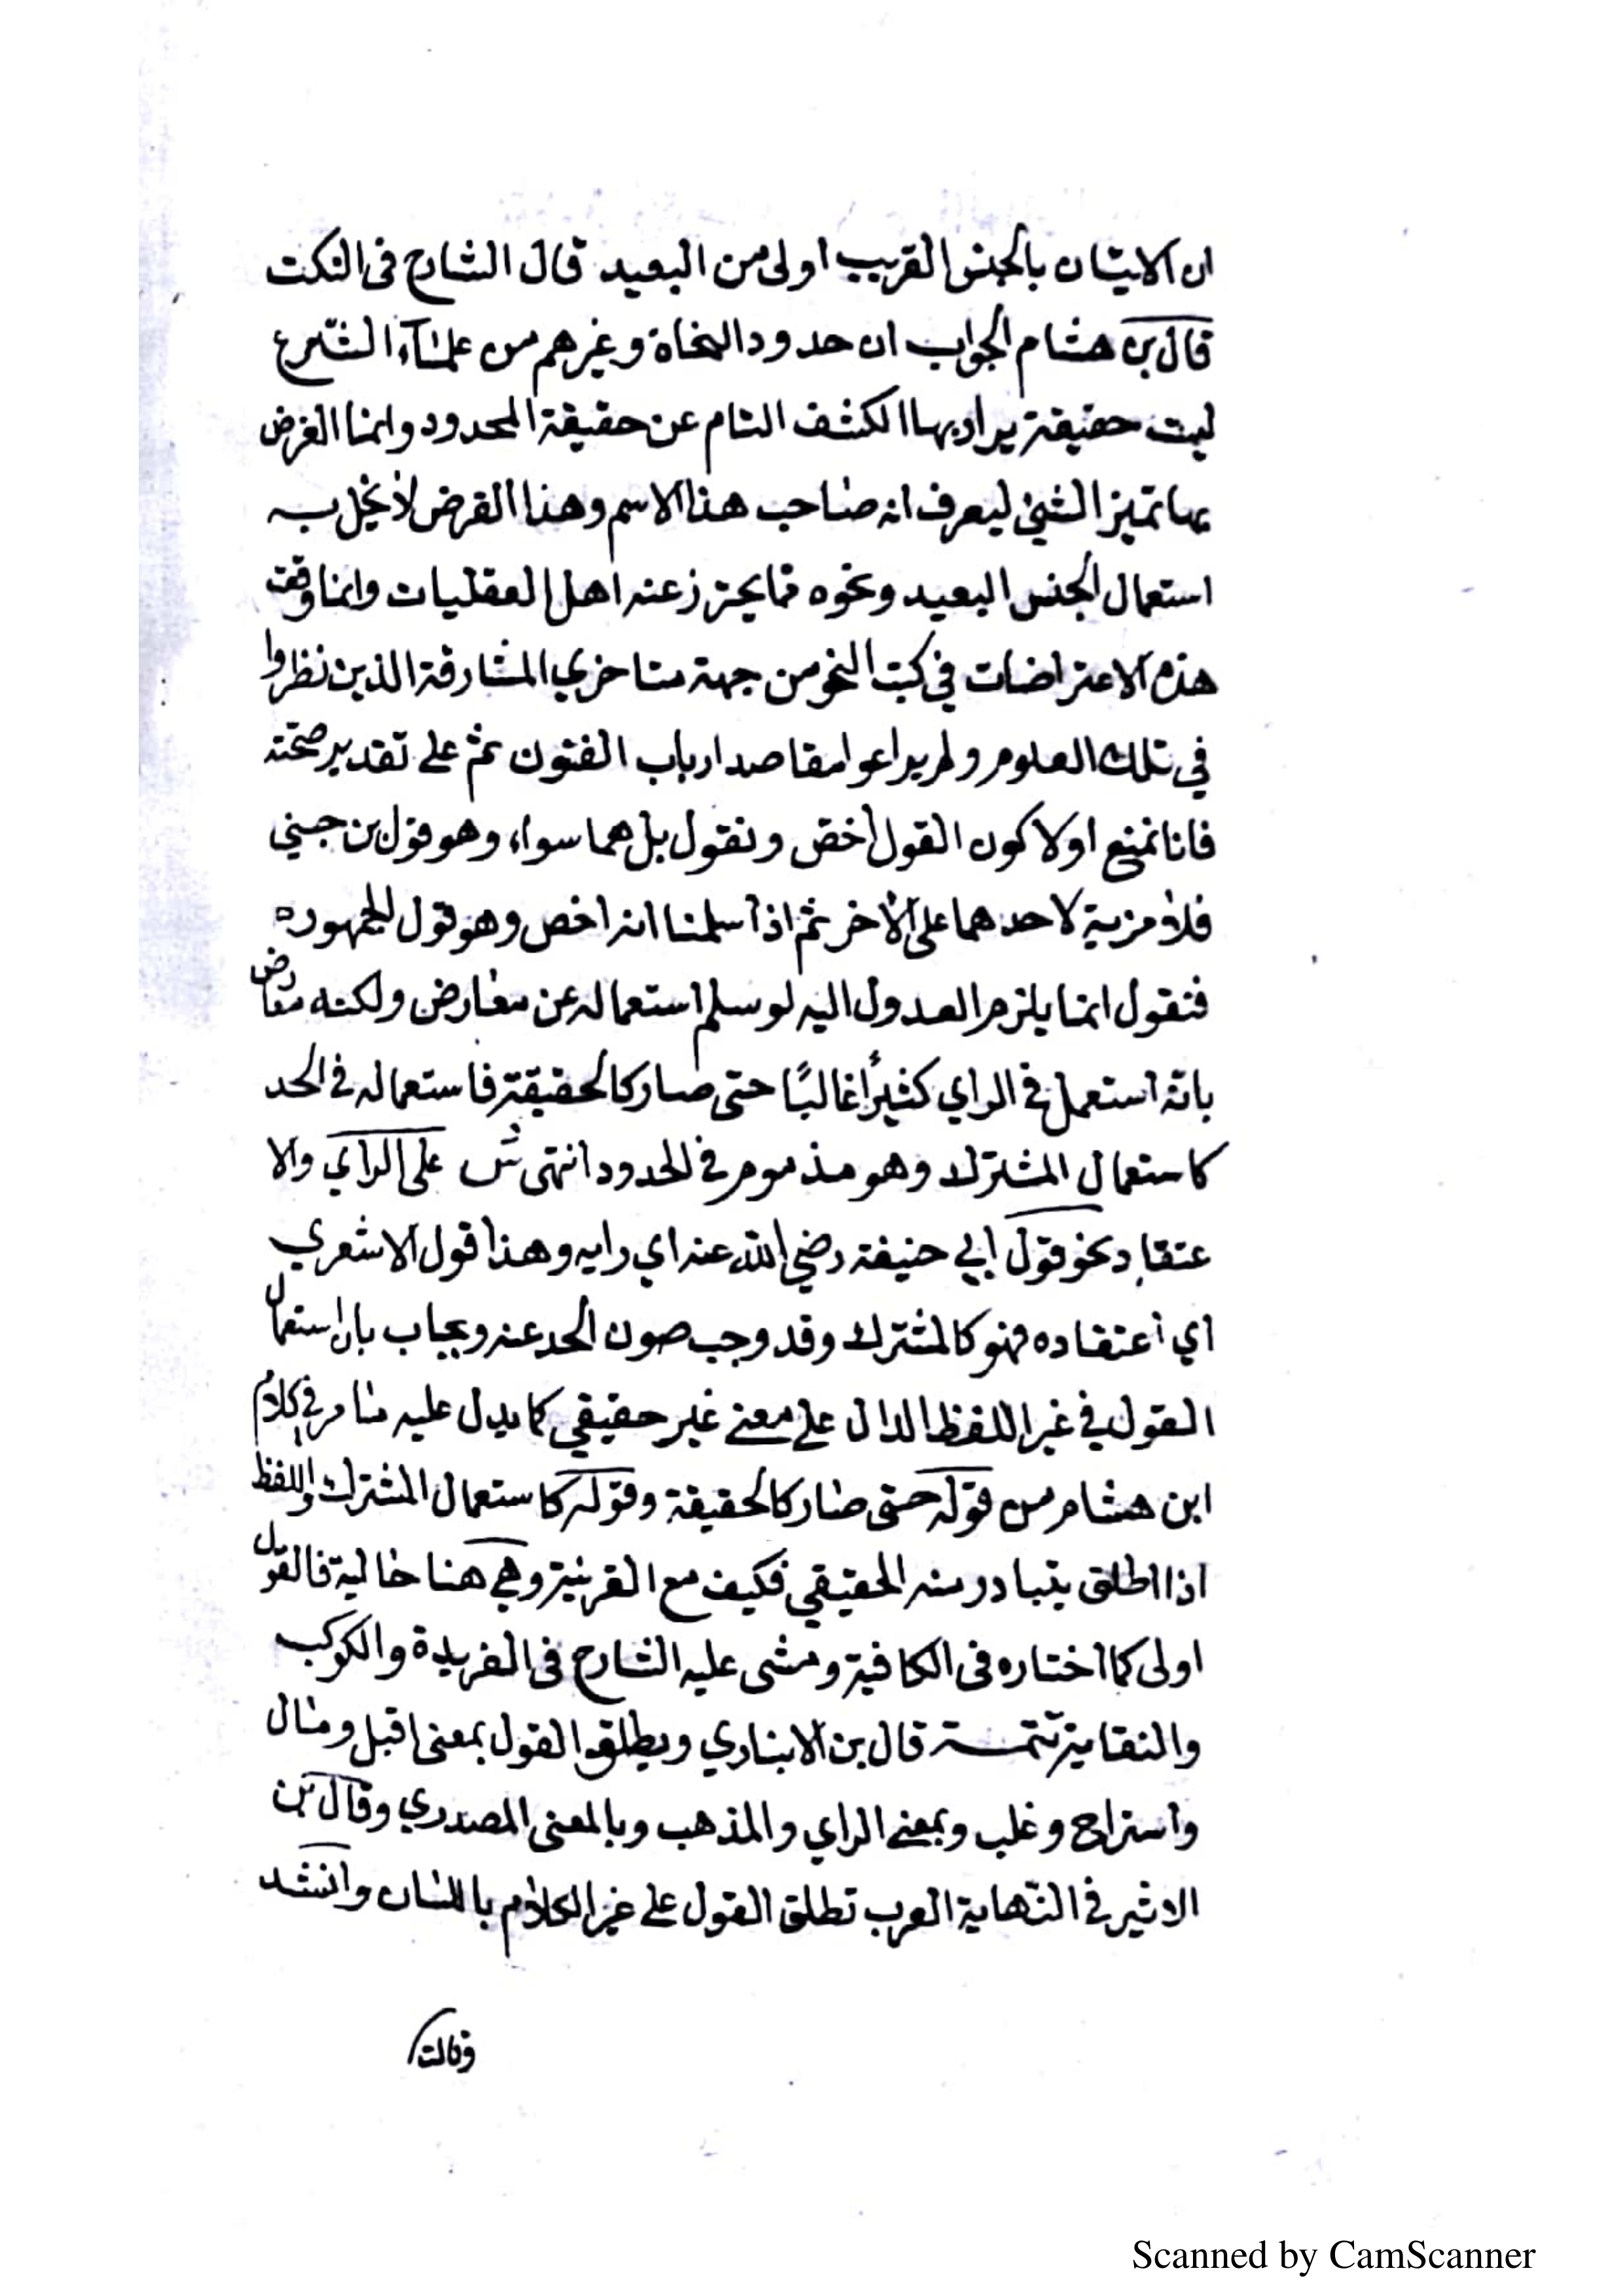 ان الاتيان بالجنس القريب اولى من البعيد قال الشارح فى النكت
قال بن هشام الجواب ان حدود النحاة وغيرهم من علمآء الشرع
ليست حقيقة يراد بها الكشف التام عن حقيقة المحدود وانما الغرض
بها تميز الشئ ليعرف انه صاحب هذا الاسم وهذا الغرض لا يخل به
استعمال الجنس البعيد ونحوه مما يحترز عنه اهل العقليات وانما وقعت
هذه الاعتراضات في كتب النحو من جهة متاخري المشارقة الذين نظروا
في تلك العلوم ولم يراعوا مقاصد ارباب الفنون ثم على تقدير صحته
فانا نمنع اولا كون القول اخص ونقول بل هما سواء وهو قول بن جني
فلا مزية لاحدهما على الاخر ثم اذا سلمنا انه اخص وهو قول الجمهور
فنقول انما يلزم العدول اليه لو سلم استعماله عن معارض ولكنه معارض
بانه استعمل في الراي كثيرًا غالبًا حتى صار كالحقيقة فاستعماله في الحد
كاستعمال المشترك وهو مذموم في الحدود انتهى ش على الراي والا
عتقاد نحو قول ابي حنيفة رضي الله عنه اي رايه وهذا قول الاشعري
اي اعتقاده فهو كالمشترك وقد وجب صون الحد عنه ويجاب بان استعمال
القول في غير اللفظ الدال على معنى غير حقيقي كما يدل عليه ما مر في كلام
ابن هشام من قوله حتى صار كالحقيقة وقوله كاستعمال المشترك واللفظ
اذا اطلق يتبادر منه الحقيقي فكيف مع القرينة وهي هنا حالية فالقول
اولى كما اختاره فى الكافية ومشى عليه الشارح فى الفريدة والكوكب
والنقاية تتمة قال بن الانباري ويطلق القول بمعنى اقبل ومال
واستراح وغلب وبمعنى الراي والمذهب وبالمعنى المصدري وقال بن
الاثير في النهاية العرب تطلق القول على غير الكلام باللسان وانشد
وقالت
Scanned by CamScanner